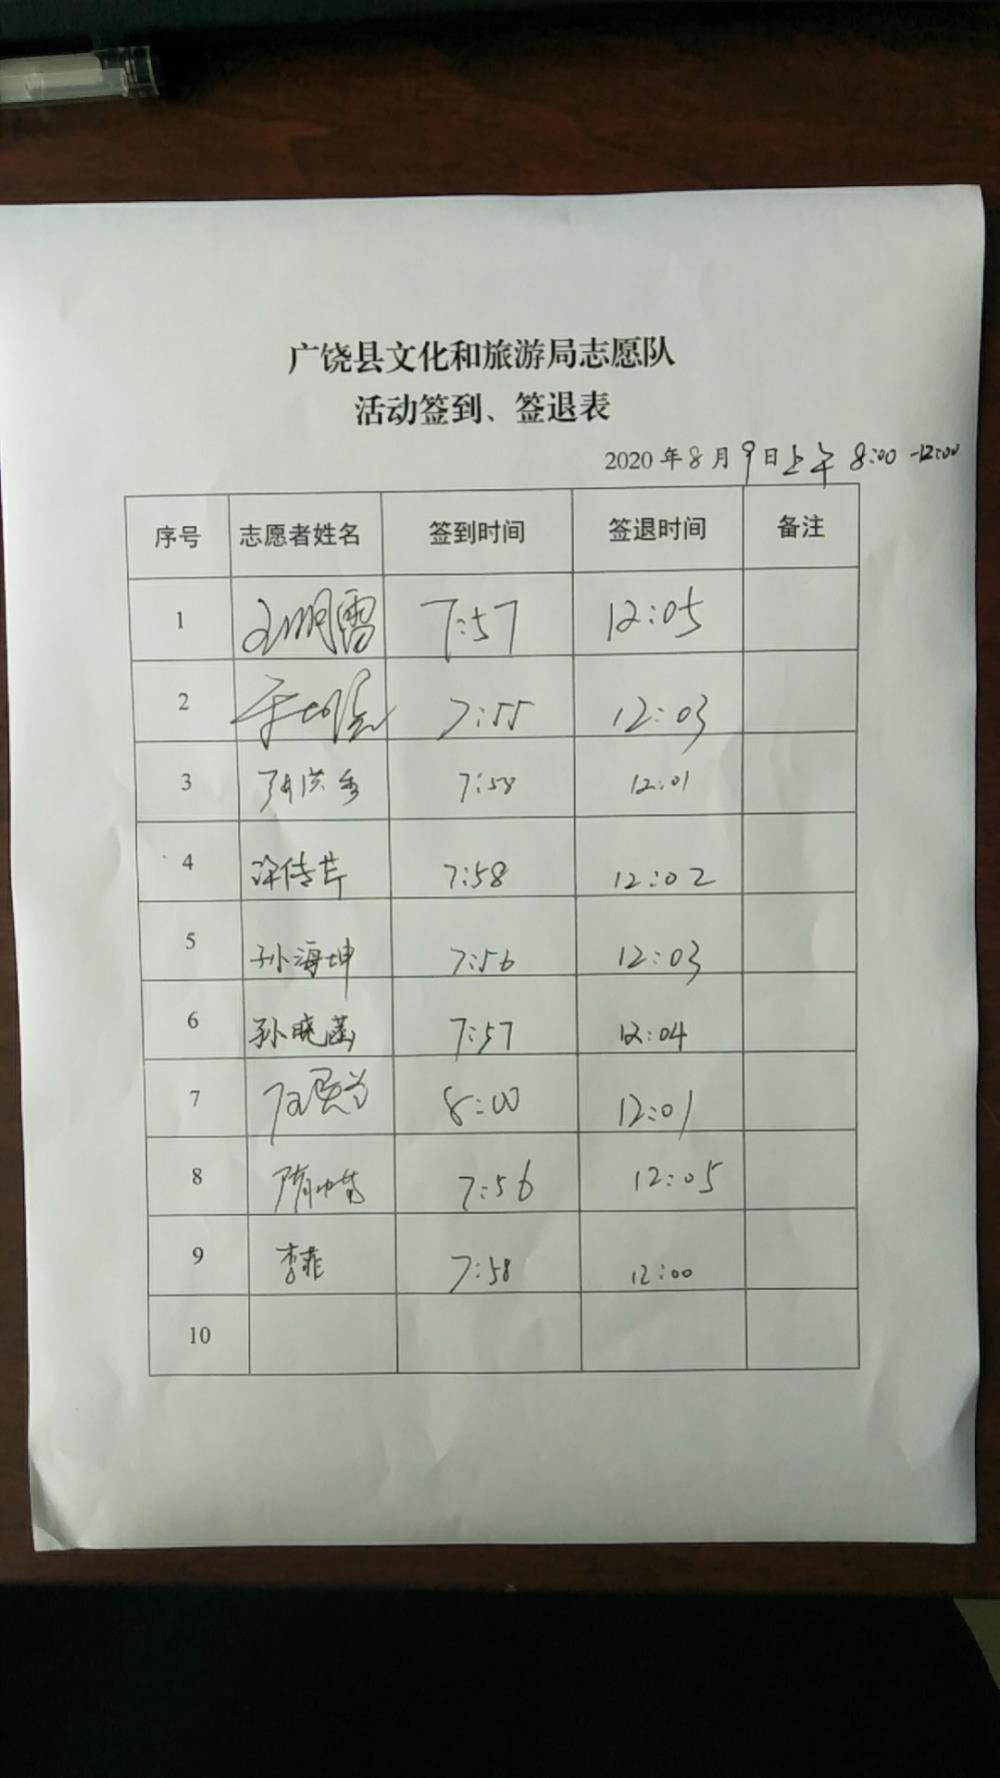 广饶县文化和旅游局志愿队
活动签到、签退表
2020年8月9日上午 8:00-12:00
序号 志愿者姓名 签到时间 签退时间 备注
1 7:57 12:05
2 7:55 12:03
3 7:58 12:01
4 7:58 12:02
5 孙海坤 7:56 12:03
6 孙晓菡 7:57 12:04
7 8:00 12:01
8 7:56 12:05
9 李菲 7:58 12:00
10